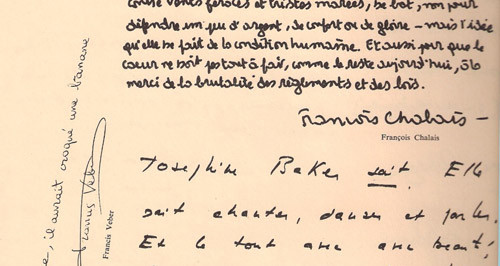 contre vents féroces et tristes marées, se bat, non pour
défendre un peu d'argent, de confort ou de gloire - mais l'idée
qu'elle se fait de la condition humaine. Et aussi pour que le
coeur ne soit pas tout à fait, comme le reste aujourd'hui, à la
merci de la brutalité des règlements et des lois.
François Chalais -
François Chalais
Josephine Baker sait. Elle
sait chanter, danser et parler.
Et le tout avec beauté,
, il aurait croqué une banane
Francis Veber
Francis Veber